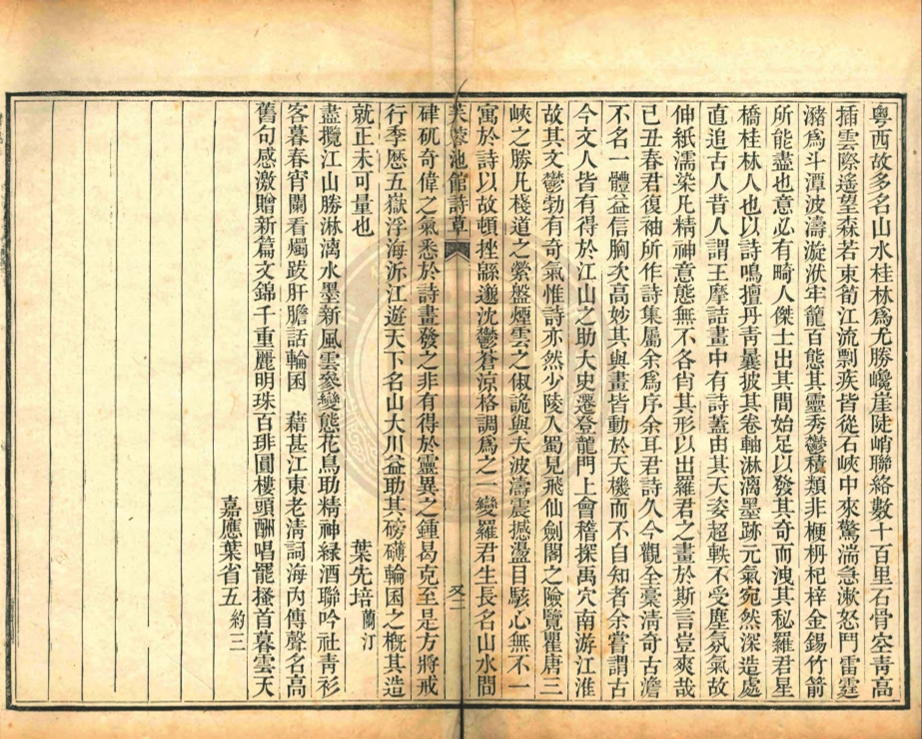 粵西故多名山水桂林爲尤勝巉崖陡峭聯絡數十百里石骨空靑高
插雲際遙望森若束筍江流剽疾皆從石峽中來驚湍急漱怒鬥雷霆
瀦爲斗潭波濤漩洑牢籠百態其靈秀鬱積類非梗枬杞梓金錫竹箭
所能盡也意必有畸人傑士出其間始足以發其奇而洩其秘羅君星
橋桂林人也以詩鳴擅丹靑曩披其卷軸淋漓墨跡元氣宛然深造處
直追古人昔人謂王摩詰畫中有詩蓋由其天姿超軼不受塵氛氣故
伸紙濡染凡精神意態無不各肖其形以出羅君之畫於斯言豈爽哉
己丑春君復袖所作詩集屬余爲序余耳君詩久今觀全稾淸奇古澹
不名一體益信胸次高妙其與畫皆動於天機而不自知者余嘗謂古
今文人皆有得於江山之助大史遷登龍門上會稽探禹穴南游江淮
故其文鬱勃有奇氣惟詩亦然少陵入蜀見飛仙劍閣之險覽瞿唐三
峽之勝凡棧道之縈盤煙雲之俶詭與夫波濤震撼盪目駭心無不一
寓於詩以故頓挫繇邈沈鬱蒼涼格調爲之一變羅君生長名山水間
芙蓉池館詩草
又二
硉矹奇偉之氣悉於詩畫發之非有得於靈異之鍾曷克至是方將戒
行李歷五嶽浮海泝江遊天下名山大川益助其磅礴輪囷之概其造
就正未可量也
葉先培蘭汀
盡攬江山勝淋漓水墨新風雲參變態花鳥助精神綠酒聯吟社靑衫
客暮春宵闌看燭跋肝膽話輪囷　藉甚江東老淸詞海內傳聲名高
舊句感激贈新篇文錦千重麗明珠百琲圓樓頭酬唱罷搔首暮雲天
嘉應葉省五約三